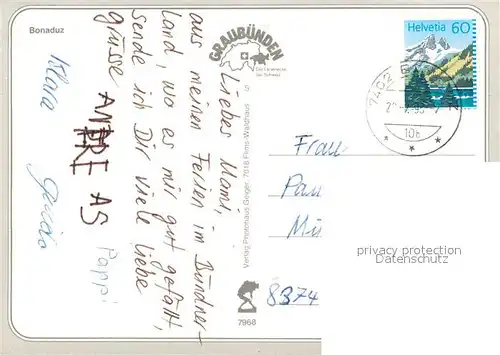 Bonaduz
GRAUBÜNDEN
Die Ferienecke
der Schweiz
Helvetia 60
7402 B
Liebes Mami,
aus meinen Ferien im Bündner-
land, wo es mir gut gefällt,
sende ich Dir viele liebe
Grüsse ANDREAS
Klara
Guido
Pappi
Verlag Photohaus Geiger, 7018 Flims-Waldhaus
S
7968
Frau
Pau
Mü
8374
privacy protection
Datenschutz